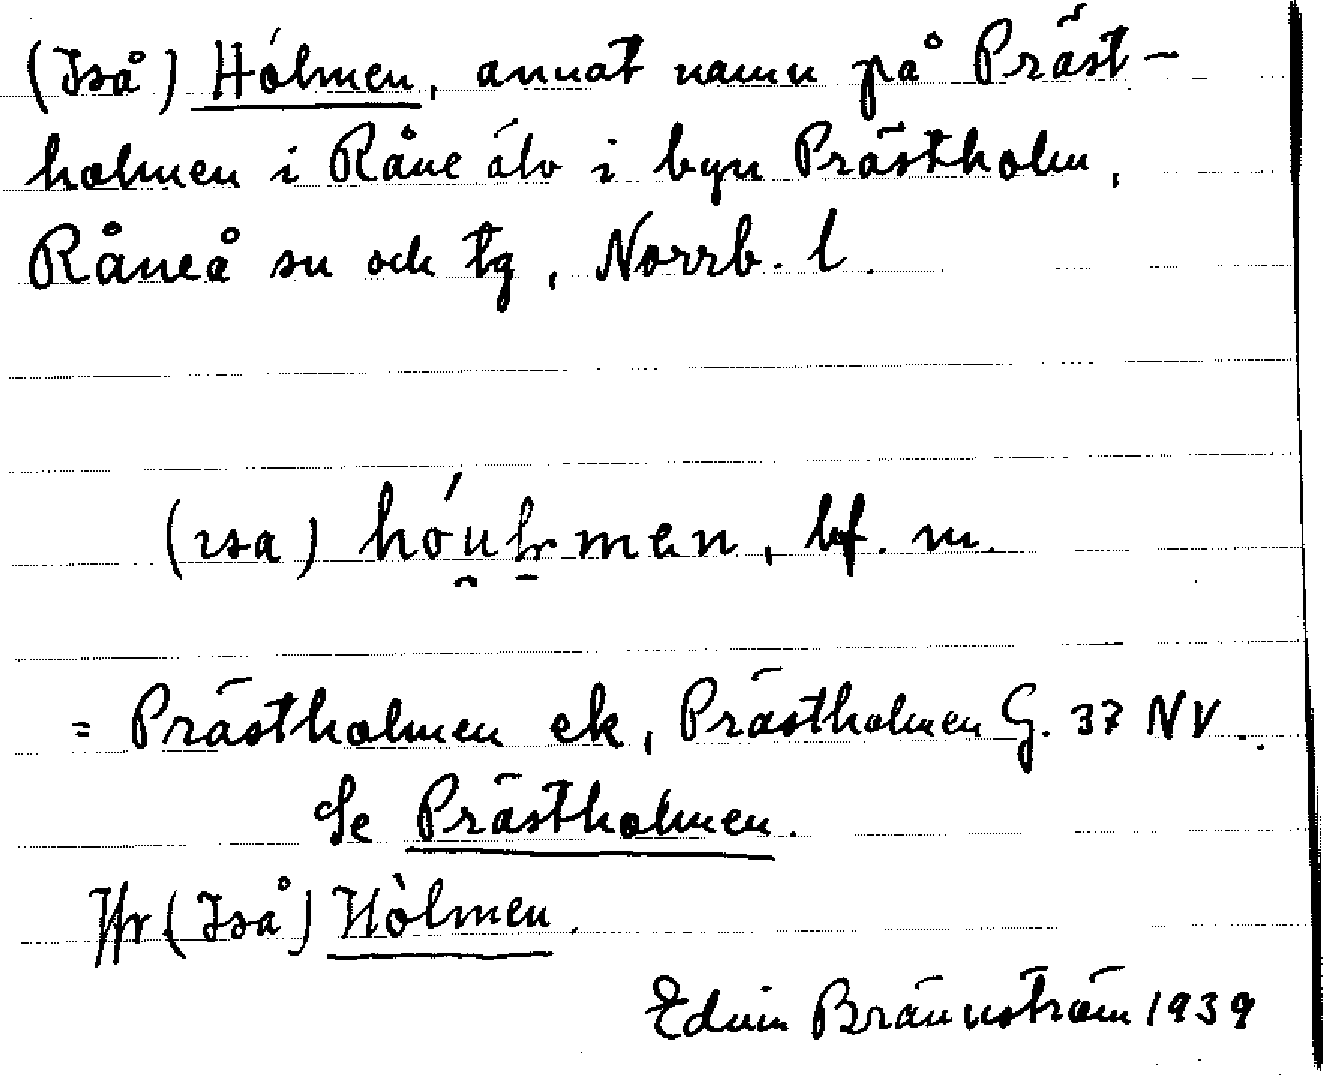 (Iså) Hólmen, annat namn på Präst-
holmen i Råne älv i byn Prästholm,
Råneå sn och tg, Norrb. l.
(ısa) hóu̯l̥men, bf. m.
= Prästholmen ek, Prästholmen G. 37 NV.
Se Prästholmen.
Jfr (Iså) Hòlmen.
Edvin Brännström 1939